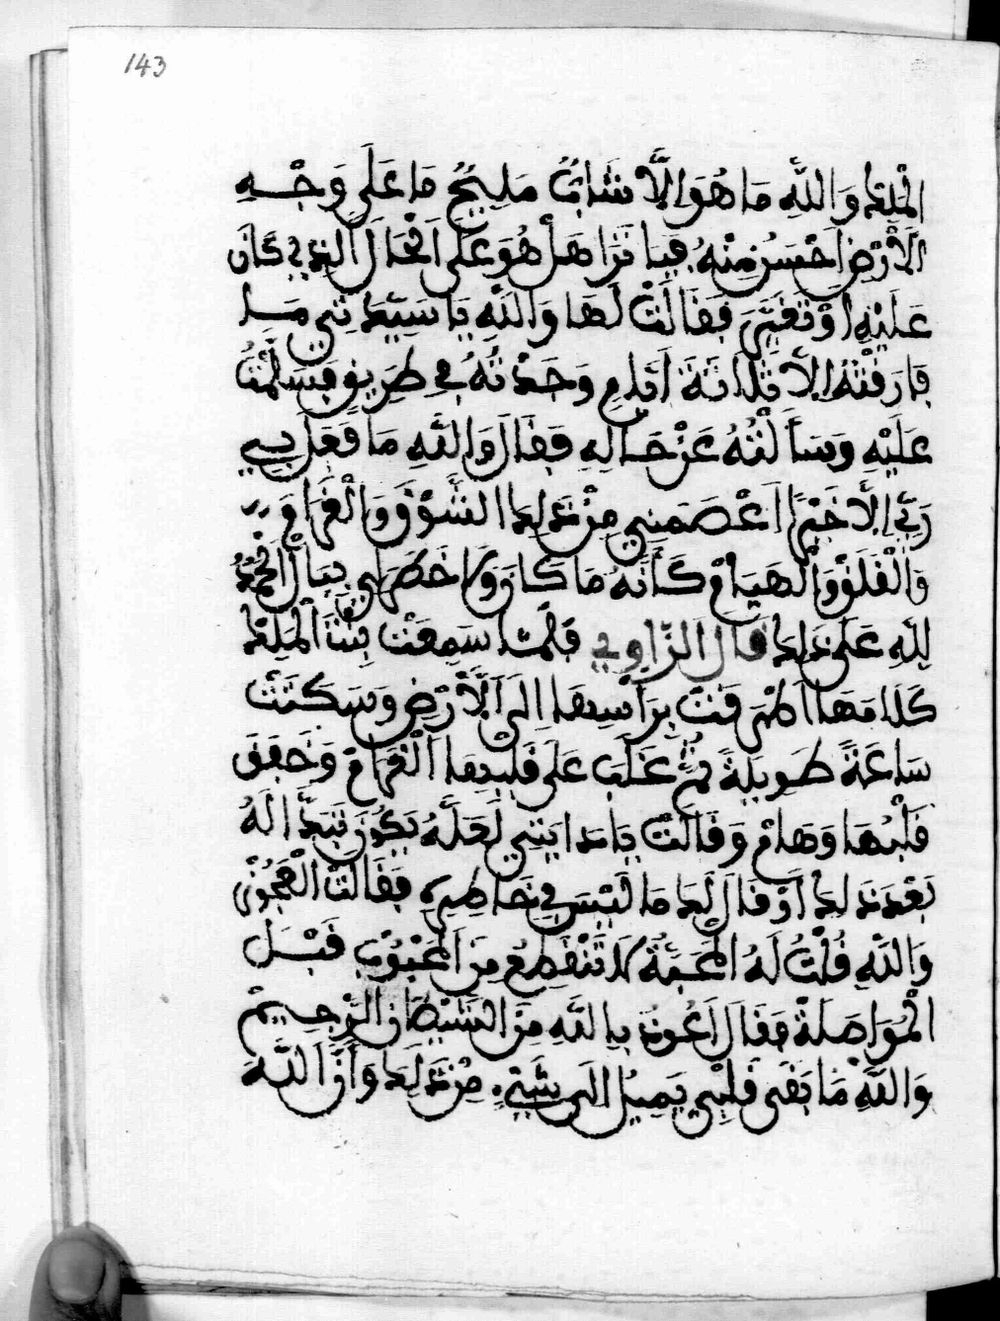 143
الْمَلِكِ وَاللَّهِ مَا هُوَ إِلَّا شَابٌّ مَلِيحٌ مَا عَلَى وَجْهِ
الْأَرْضِ أَحْسَنُ مِنْهُ فَيَا تَرَا هَلْ هُوَ عَلَى الْحَالِ الَّذِي كَانَ
عَلَيْهِ أَوْ تَغَيَّرَ فَقَالَتْ لَهَا وَاللَّهِ يَا سَيِّدَتِي مَا
فَارَقْتُهُ إِلَّا ثَلَاثَةَ أَيَّامٍ وَجَدْتُهُ فِي طَرِيقٍ فَسَلَّمْتُ
عَلَيْهِ وَسَأَلْتُهُ عَنْ حَالِهِ فَقَالَ وَاللَّهِ مَا فَعَلَ بِي
رَبِّي إِلَّا خَيْرًا اعْصَمَنِي مِنْ ذَلِكَ الشَّوْقِ وَالْفِرَاقِ
وَالْقَلَقِ وَالْهَيَامِ كَأَنَّهُ مَا كَانَ وَلَا خَطَرَ لِي بِبَالٍ الْحَمْدُ
لِلَّهِ عَلَى ذَلِكَ قَالَ الرَّاوِي فَلَمَّا سَمِعَتْ بِنْتُ الْمَلِكِ
كَلَامَهَا اطْرَقَتْ بِرَأْسِهَا إِلَى الْأَرْضِ وَسَكَتَتْ
سَاعَةً طَوِيلَةً ثُمَّ غَلَبَ عَلَى قَلْبِهَا الْغَرَامُ وَخَفَقَ
قَلْبُهَا وَهَامَ وَقَالَتْ يَا مَدَايَتِي لَعَلَّهُ يَكُونُ تَبَدَّا لَهُ
بَعْدَ ذَلِكَ أَوْ قَالَ لَكِ مَا لَيْسَ فِي خَاطِرِهِ فَقَالَتْ الْعَجُوزُ
وَاللَّهِ قُلْتُ لَهُ الْمَحَبَّةُ لَا تَنْقَطِعُ مِنَ الْمَحْبُوبِ قَبْلَ
الْمُوَاصَلَةِ فَقَالَ أَعُوذُ بِاللَّهِ مِنَ الشَّيْطَانِ الرَّجِيمِ
وَاللَّهِ مَا بَقَى قَلْبِي يَمِيلُ إِلَى شَيْءٍ مِنْ ذَلِكَ وَأَنَّ اللَّهَ